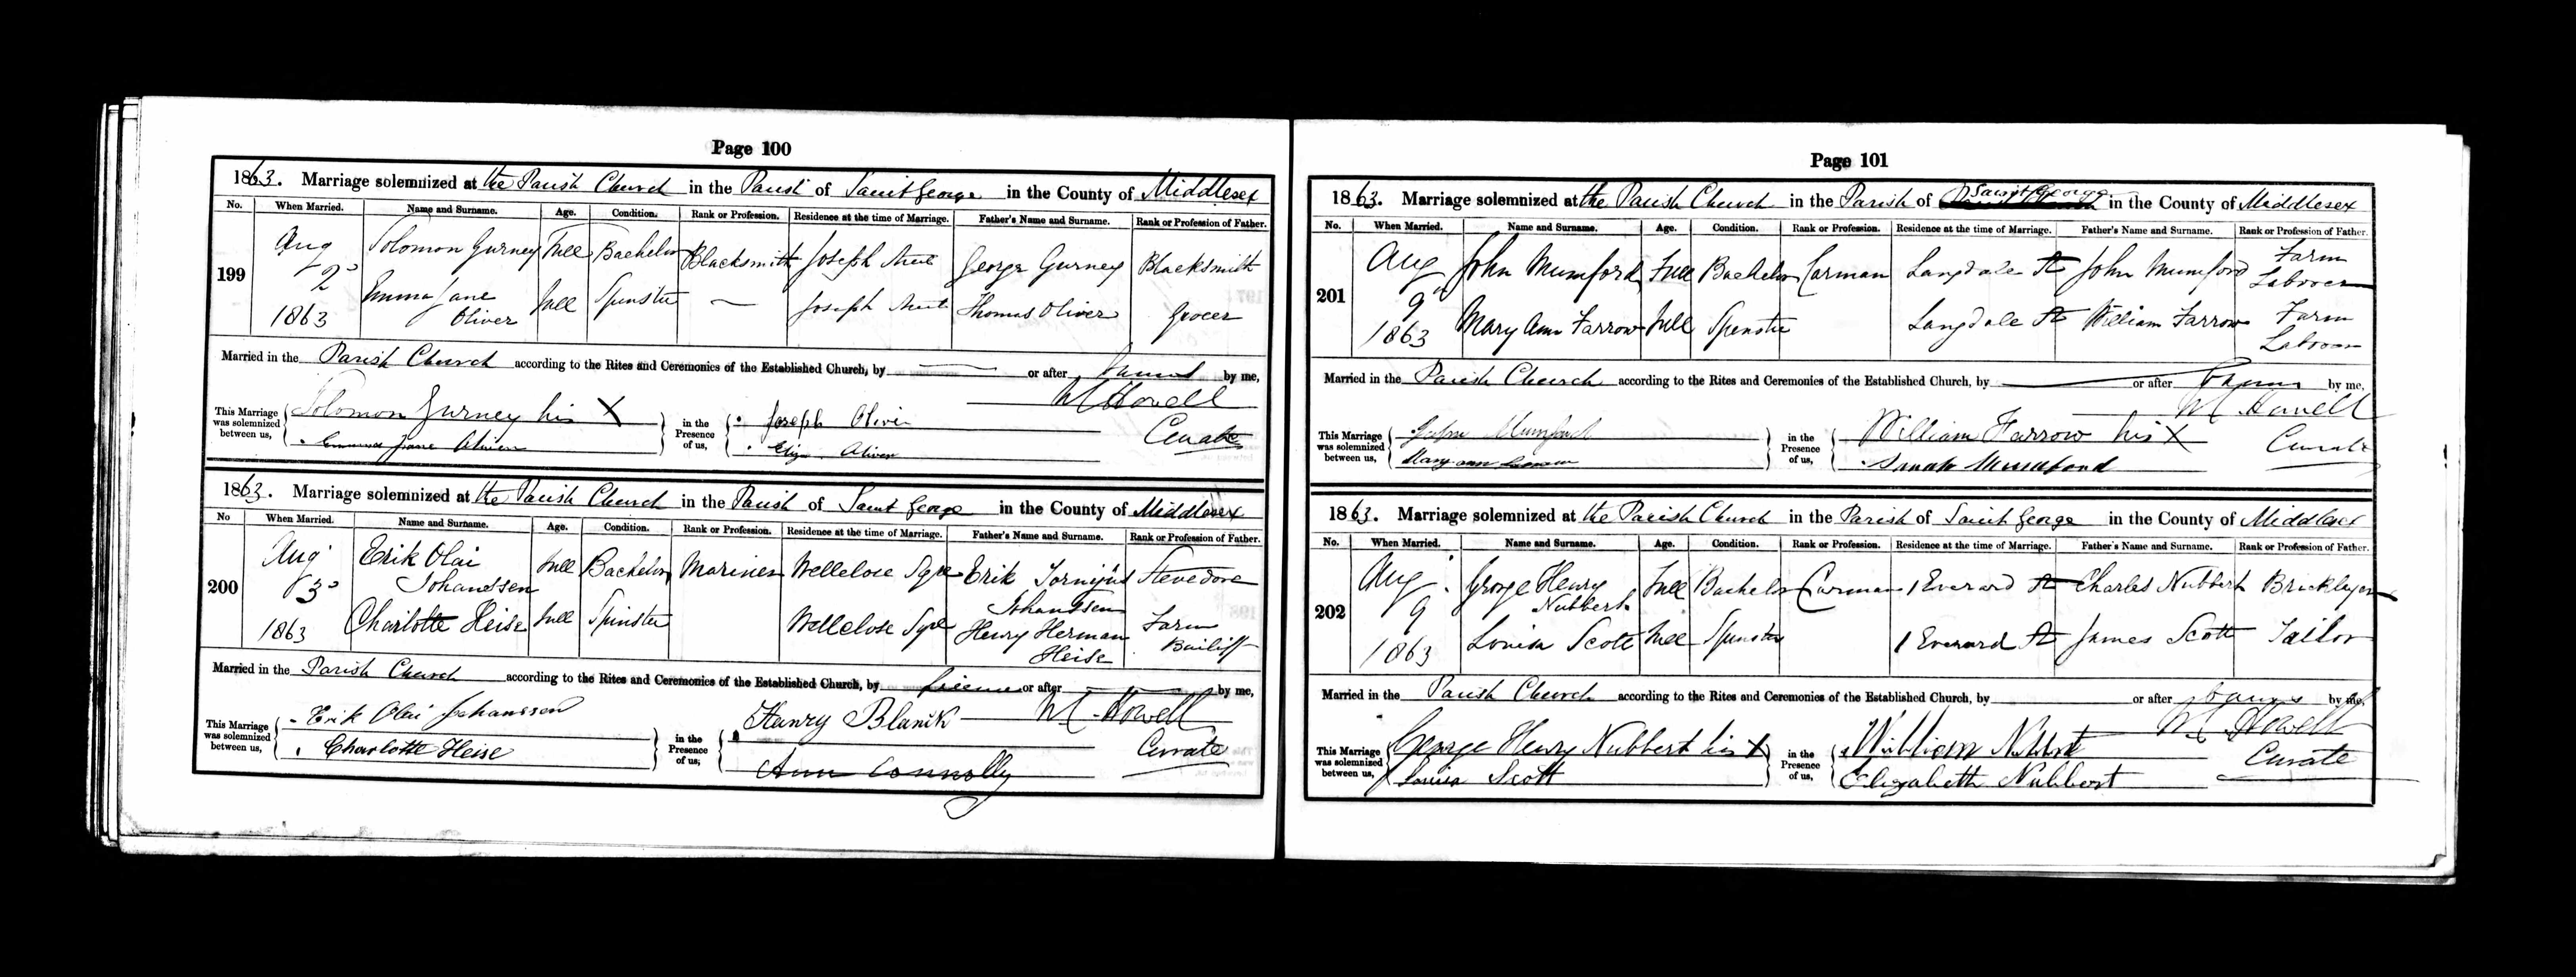 Page 100
1863. Marriage solemnized at the Parish Church in the Parish of Saint George in the County of Middlesex
No. When Married. Name and Surname. Age. Condition. Rank or Profession. Residence at the time of Marriage. Father's Name and Surname. Rank or Profession of Father.
199
Aug 2 1863
Solomon Gurney Full Bachelor Blacksmith Joseph Street George Gurney Blacksmith
Emma Jane Oliver Full Spinster — Joseph Street Thomas Oliver Grocer
Married in the Parish Church according to the Rites and Ceremonies of the Established Church, by — or after Banns by me,
W Howell
Curate
This Marriage was solemnized between us,
Solomon Gurney his X
Emma Jane Oliver
in the Presence of us,
Joseph Oliver
Eliza Oliver
1863. Marriage solemnized at the Parish Church in the Parish of Saint George in the County of Middlesex
No When Married. Name and Surname. Age. Condition. Rank or Profession. Residence at the time of Marriage. Father's Name and Surname. Rank or Profession of Father.
200
Aug 3 1863
Erik Olai Johanssen Full Bachelor Mariner Wellclose Sqre Erik Johanssen Stevedore
Charlotte Heise Full Spinster Wellclose Sqre Henry Herman Heise Farm Bailiff
Married in the Parish Church according to the Rites and Ceremonies of the Established Church, by License or after — by me,
W Howell
Curate
This Marriage was solemnized between us,
Erik Olai Johanssen
Charlotte Heise
in the Presence of us,
Henry Blanck
Ann Connolly
Page 101
1863. Marriage solemnized at the Parish Church in the Parish of Saint George in the County of Middlesex
No. When Married. Name and Surname. Age. Condition. Rank or Profession. Residence at the time of Marriage. Father's Name and Surname. Rank or Profession of Father.
201
Aug 9 1863
John Mumford Full Bachelor Carman Langdale St John Mumford Farm Labourer
Mary Ann Farrow Full Spinster Langdale St William Farrow Farm Labourer
Married in the Parish Church according to the Rites and Ceremonies of the Established Church, by — or after Banns by me,
W Howell
Curate
This Marriage was solemnized between us,
John Mumford
Mary ann Farrow
in the Presence of us,
William Farrow his X
Sarah Mumford
1863. Marriage solemnized at the Parish Church in the Parish of Saint George in the County of Middlesex
No. When Married. Name and Surname. Age. Condition. Rank or Profession. Residence at the time of Marriage. Father's Name and Surname. Rank or Profession of Father.
202
Aug 9 1863
George Henry Nubbert Full Bachelor Carman 1 Everard St Charles Nubbert Bricklayer
Louisa Scott Full Spinster 1 Everard St James Scott Tailor
Married in the Parish Church according to the Rites and Ceremonies of the Established Church, by — or after banns by me,
W Howell
Curate
This Marriage was solemnized between us,
George Henry Nubbert his X
Louisa Scott
in the Presence of us,
William
Elizabeth Nubbert